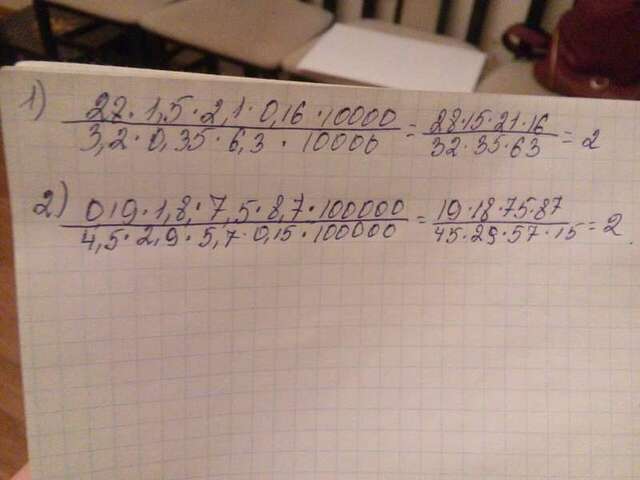 1) 28 · 1,5 · 2,1 · 0,16 · 10000 / 3,2 · 0,35 · 6,3 · 10000 = 28·15·21·16 / 32·35·63 = 2
2) 0,19 · 1,8 · 7,5 · 8,7 · 100000 / 4,5 · 2,9 · 5,7 · 0,15 · 100000 = 19·18·75·87 / 45·29·57·15 = 2